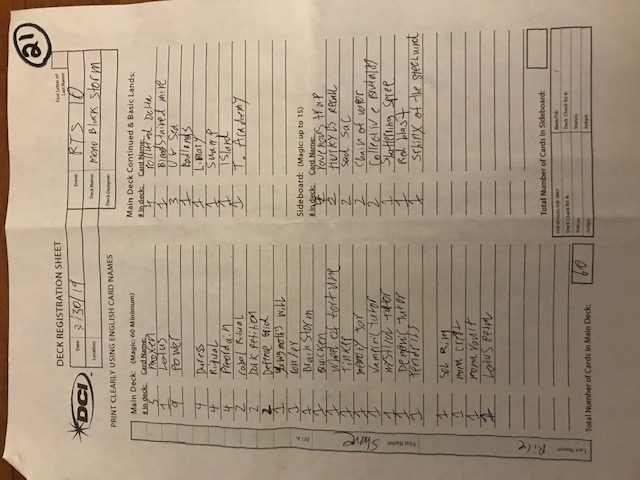 21
DECK REGISTRATION SHEET
First Letter of
Last Name:
DCI
Date: 3/30/19
Event: RTS 10
Location:
Deck Name: Mono Black Storm
Deck Designer:
PRINT CLEARLY USING ENGLISH CARD NAMES
Main Deck: (Magic: 60 Minimum)
# in deck: Card Name:
5 Moxen
1 Lotus
9 Power
4 Duress
4 Ritual
4 Preordain
2 Cabal Ritual
2 Dark Petition
2 Defense Grid
1 Yawgmoth's Will
1
1 Brain Storm
1 Quicken
1 Wheel of fortune
1 Tinker
1 Memory Jar
1 Vampiric tutor
1 Mystical tutor
1 Demonic tutor
1 Tendrils
1 Sol Ring
1 Mana Crypt
1 Mana Vault
1 Lotus Petal
Total Number of Cards in Main Deck: 60
Main Deck Continued & Basic Lands:
# in deck: Card Name:
4 Polluted Delta
1 Bloodstained mire
3 U Sea
1 Badlands
1 Library
1 Swamp
1 Island
1 T. Academy
Sideboard: (Magic: up to 15)
# in deck: Card Name:
Ravenous trap
2 Hurkyls Recall
2 Sad Sac
2 Chain of vapor
2 Collective Brutality
1 Shattering Spree
1 Red blast
1 Sphinx of the steelwind
Total Number of Cards in Sideboard:
FOR OFFICIAL USE ONLY
Main/SB:
Deck Check Rd #:
Deck Check Rd #:
Status:
Status:
Judge:
Judge:
DCI #:
First Name: Shane
Last Name: Rice